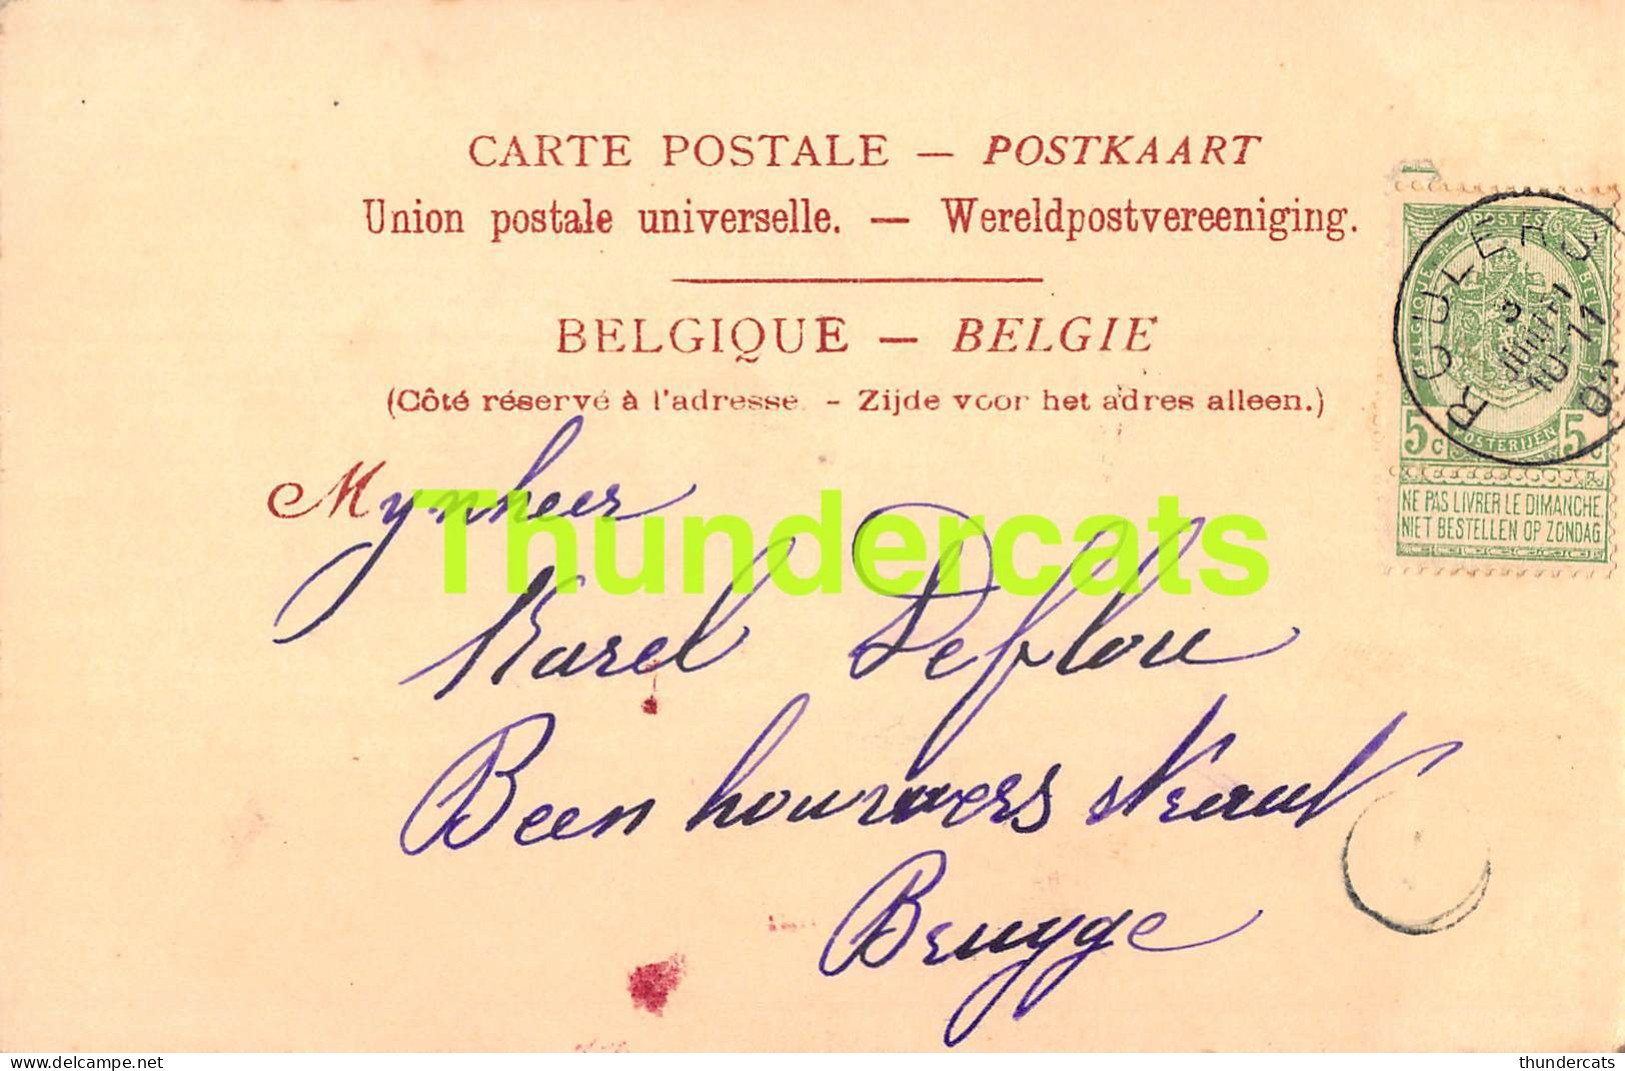 CARTE POSTALE — POSTKAART
Union postale universelle. — Wereldpostvereeniging.
BELGIQUE — BELGIE
(Côté réservé à l'adresse. - Zijde voor het adres alleen.)
POSTES
BELGIQUE
BELGIË
5c
POSTERIJEN
5c
NE PAS LIVRER LE DIMANCHE.
NIET BESTELLEN OP ZONDAG
ROULERS
3
10-11
Mynheer
Thundercats
Karel Deflou
Beenhouwersstraat
Brugge
www.delcampe.net
thundercats